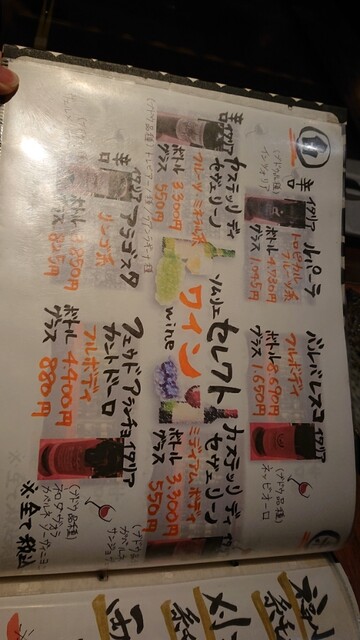 ソムリエ セレクト
ワイン
wine
辛口
イタリア
ルパーテ
トロピカル
フルーツ系
ボトル 4,730円
グラス 1,045円
バルバレスコ イタリア
フルボディ
ボトル 8,690円
グラス 1,650円
(ブドウ品種)
ネッビオーロ
辛口
イタリア
カステッリ ディ
セヴェリーノ
フルーツミネラル系
ボトル 3,300円
グラス 550円
カステッリ ディ
セヴェリーノ
ミディアムボディ
ボトル 3,300円
グラス 550円
辛口
イタリア
アラゴスタ
リンゴ系
ボトル 3,850円
フェウド アランチョ イタリア
カントドーロ
フルボディ
ボトル 4,400円
グラス 880円
(ブドウ品種)
ネロダヴォラ
カベルネ ソーヴィニヨン
※全て税込